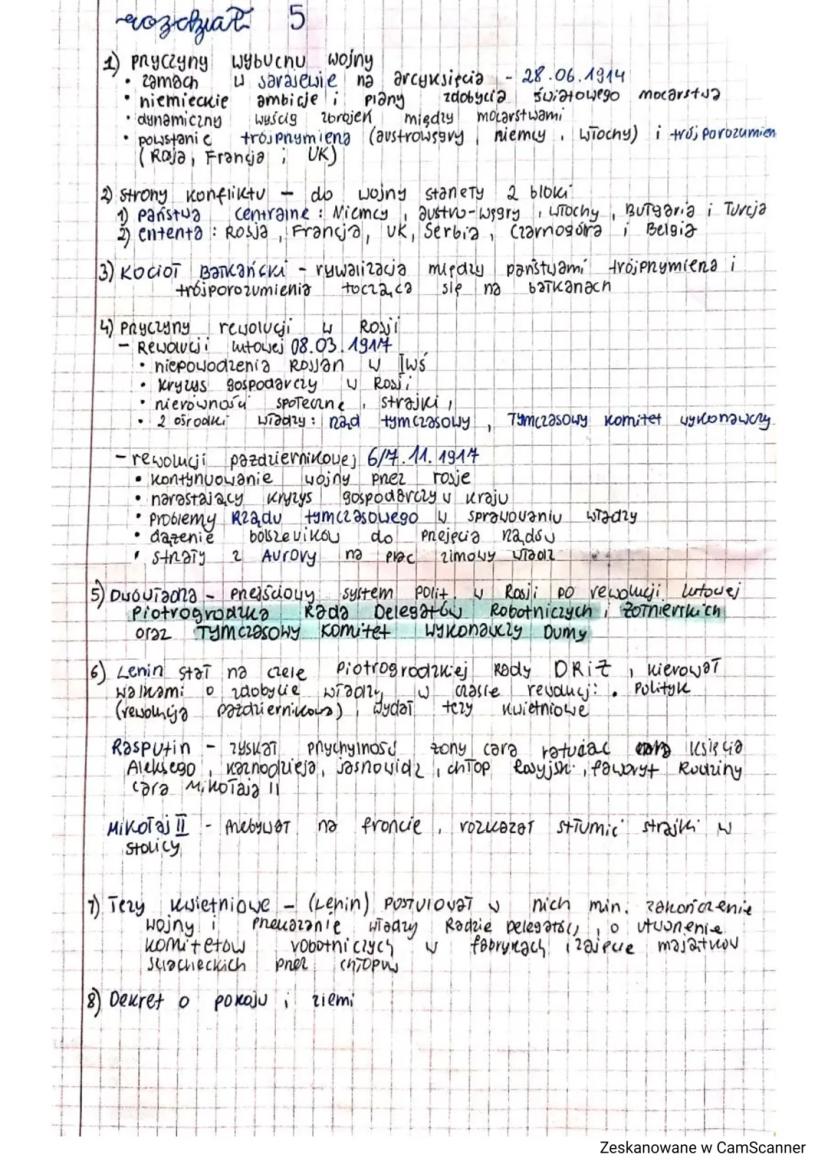 rozdział 5
1) przyczyny wybuchu wojny
• zamach w sarajewie na arcyksięcia - 28.06.1914
• niemieckie ambicje i plany zdobycia światowego mocarstwa
• dynamiczny wyścig zbrojeń między mocarstwami
• powstanie trójprzymierza (austrowęgry, niemcy, włochy) i trójporozumien
(Rosja, Francja i UK)
2) strony konfliktu - do wojny stanęły 2 bloki
1) państwa centralne: Niemcy, austro-węgry, włochy, Bułgaria i Turcja
2) ententa: Rosja, Francja, UK, Serbia, Czarnogóra i Belgia
3) Kocioł Bałkański - rywalizacja między państwami trójprzymierza i
trójporozumienia tocząca się na bałkanach
4) przyczyny rewolucji w Rosji
- Rewolucji lutowej 08.03.1917
• niepowodzenia Rosjan w IWŚ
• kryzys gospodarczy w Rosji
• nierówności społeczne, strajki,
• 2 ośrodki władzy: rząd tymczasowy, Tymczasowy komitet wykonawczy
- rewolucji październikowej 6/7.11.1917
• kontynuowanie wojny przez rosje
• narastający kryzys gospodarczy w kraju
• problemy Rządu tymczasowego w sprawowaniu władzy
• dążenie bolszewików do przejęcia rządów
• strzały z Aurory na plac zimowy władz
5) Dwówładza - przejściowy system polit. w Rosji po rewolucji lutowej
Piotrogrodzka Rada Delegatów Robotniczych i Żołnierskich
oraz Tymczasowy Komitet Wykonawczy Dumy
6) Lenin stał na czele Piotrogrodzkiej Rady DRiŻ, kierował
walkami o zdobycie władzy w czasie rewolucji. Polityk
(rewolucja październikowa), wydał tezy kwietniowe
Rasputin - zyskał przychylność żony cara ratując księcia
Aleksego, kaznodzieja, jasnowidz, chłop Rosyjski, faworyt Rodziny
cara Mikołaja II
Mikołaj II - Przebywał na froncie, rozkazał stłumić strajki w
stolicy
7) Tezy kwietniowe - (Lenin) postulował w nich min. zakończenie
wojny i przekazanie władzy Radzie Delegatów, o utworzenie
komitetów robotniczych w fabrykach i zajęcie majątków
szlacheckich przez chłopów
8) Dekret o pokoju i ziemi
Zeskanowane w CamScanner